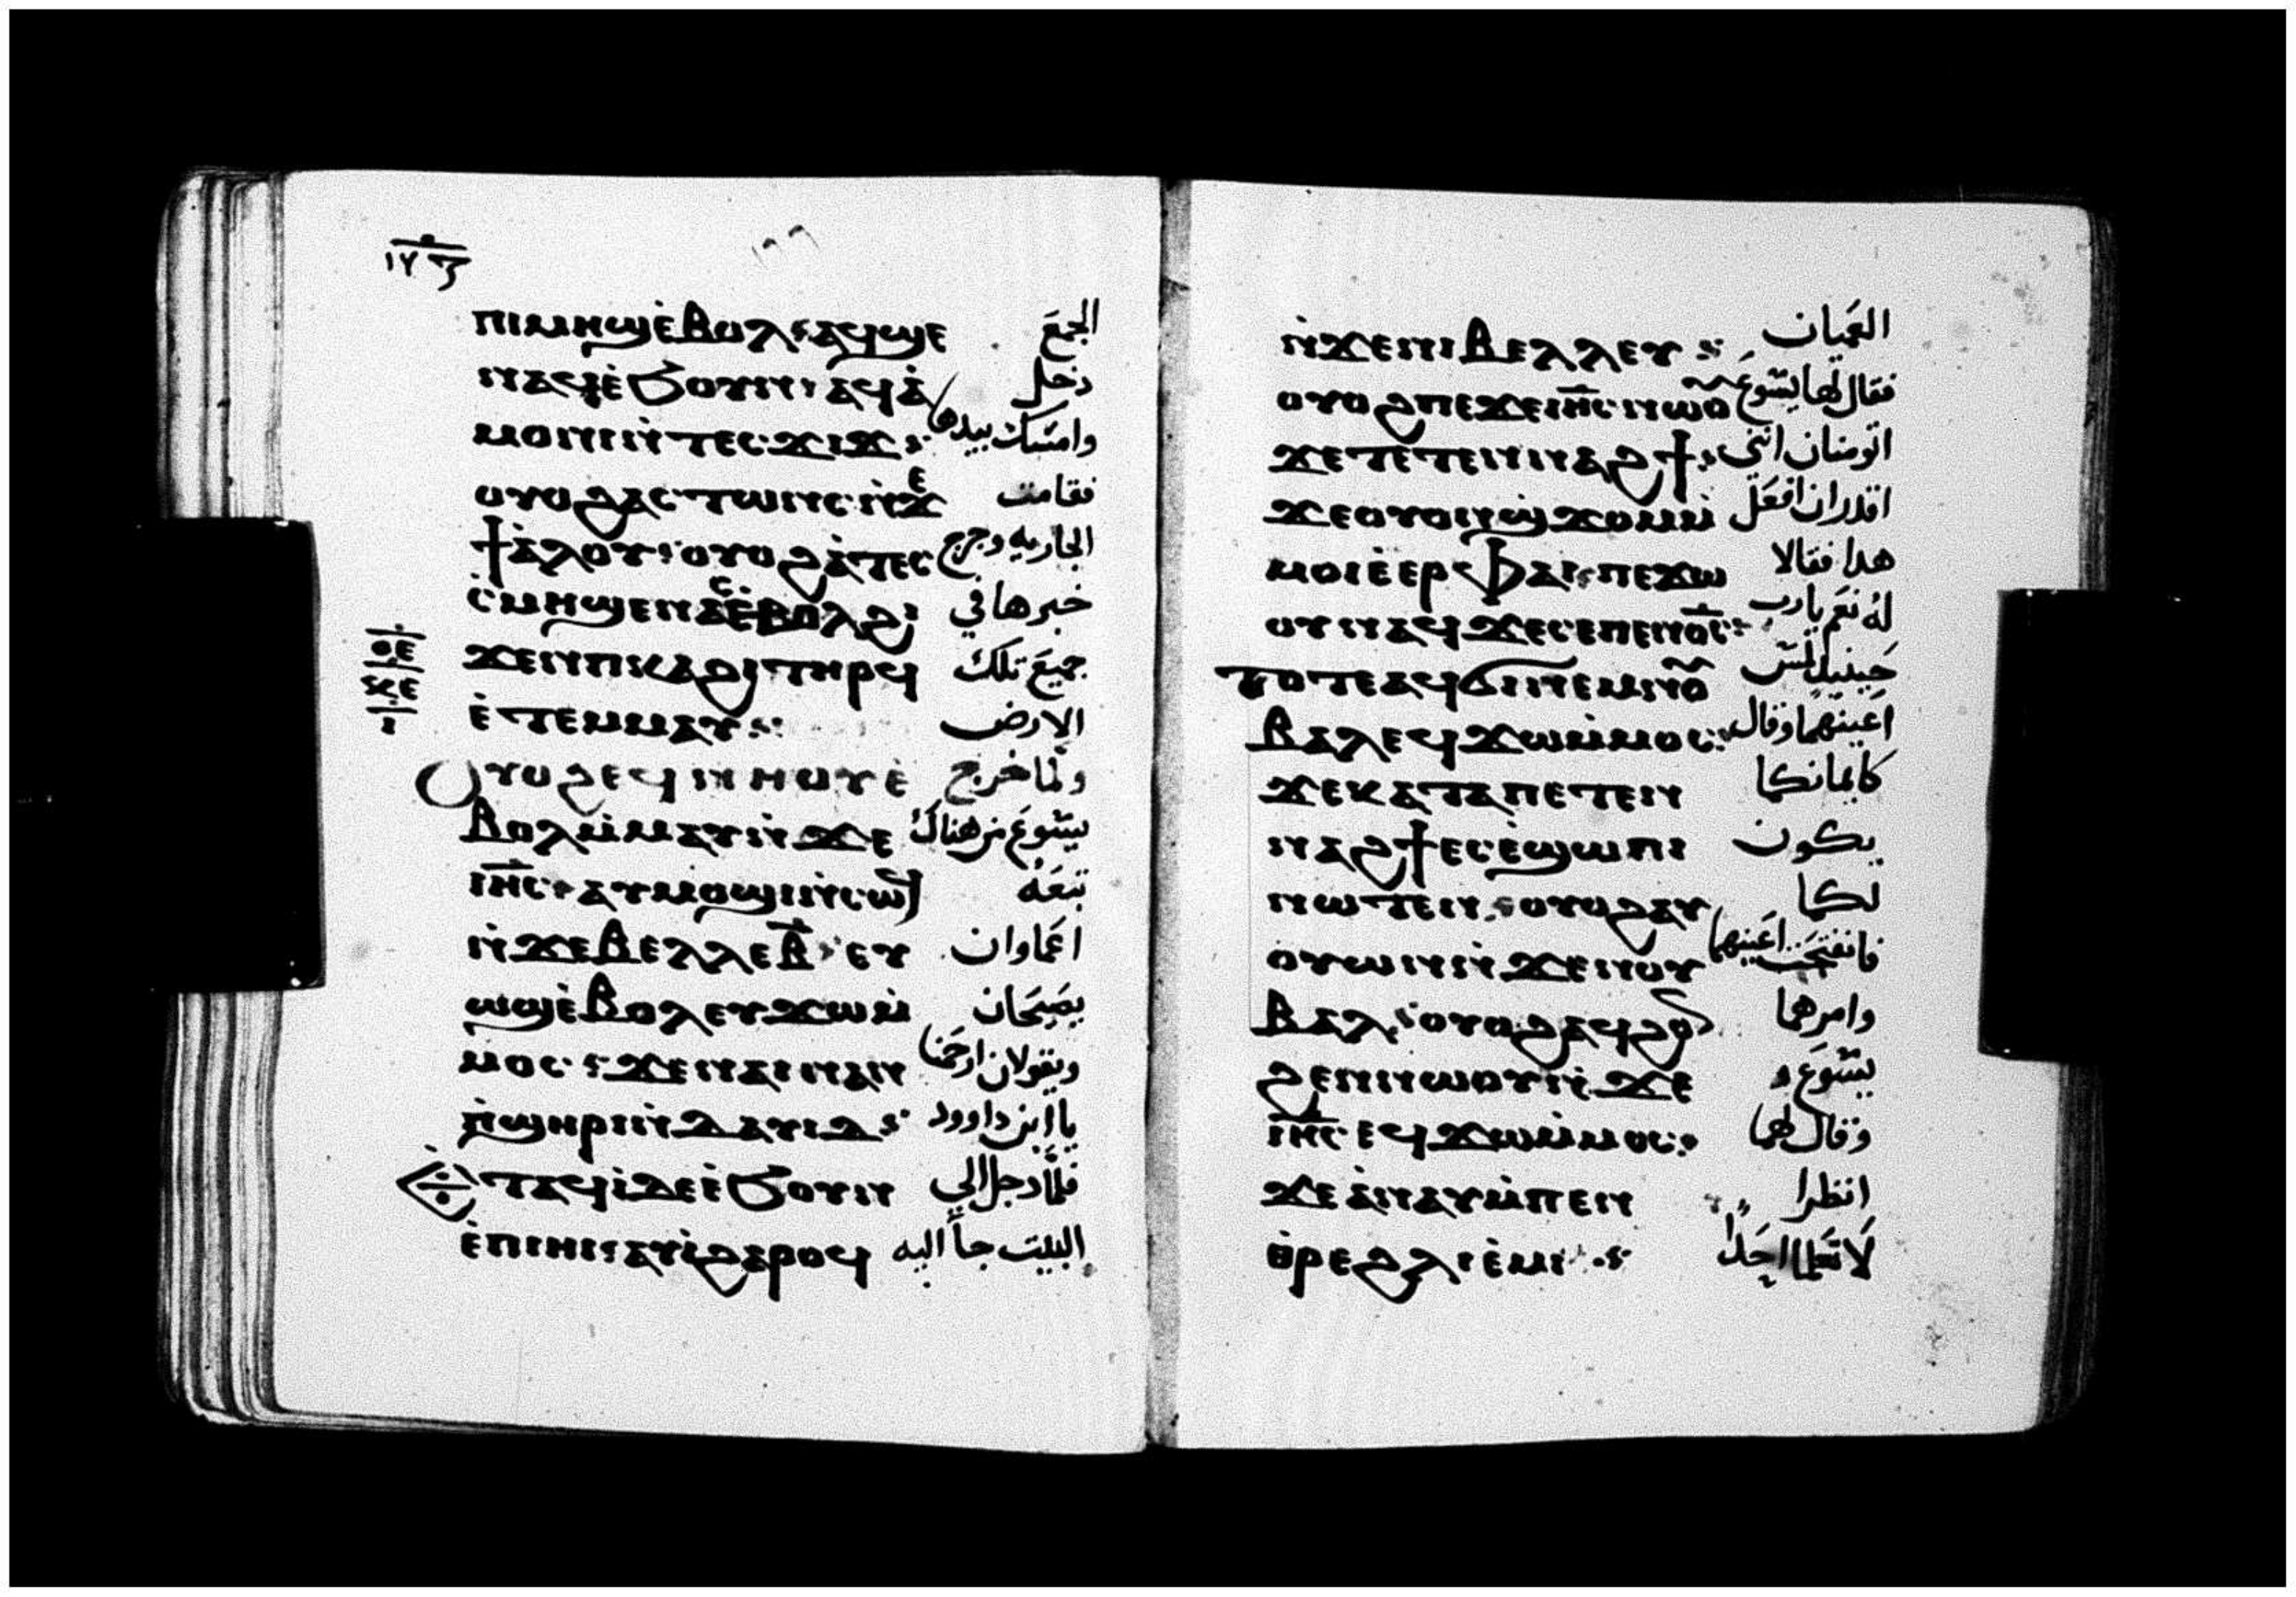 ⲡⲓⲙⲏϣ ⲉ̀ⲃⲟⲗ ⲁϥϣⲉ الجمع
ⲛⲁϥ ⲉ̀ϧⲟⲩⲛ ⲁϥⲁ̀ دخل
ⲙⲟⲛⲓ ⲛ̀ⲧⲉⲥϫⲓϫ وامسك بيدها
ⲟⲩⲟϩ ⲁⲥⲧⲱⲛⲥ ⲛ̀ϫⲉ فقامت
ϯⲁ̀ⲗⲟⲩ ⲟⲩⲟϩ ⲁ̀ⲧⲉⲥ الجاريه وخرج
ⲥ̀ⲙⲏ ϣⲉⲛⲁⲥ ⲉ̀ⲃⲟⲗ ϩⲓ خبرها في
ϫⲉⲛ ⲡⲓⲕⲁϩⲓ ⲧⲏⲣϥ جميع تلك
ⲉ̀ⲧⲉⲙⲙⲁⲩ الارض
ⲟⲩⲟϩ ⲉϥⲛⲏⲟⲩ ⲉ̀ ولما خرج
ⲃⲟⲗ ⲙ̀ⲙⲁⲩ ⲛ̀ϫⲉ يسوع من هناك
ⲓⲏ̅ⲥ ⲁⲩⲙⲟϣⲓ ⲛ̀ⲥⲱϥ تبعه
ⲛ̀ϫⲉ ⲃⲉⲗⲗⲉ ⲃ̅ ⲉⲩ اعماوان
ⲱϣ ⲉ̀ⲃⲟⲗ ⲉⲩϫⲱ ⲙ̀ يصيحان
ⲙⲟⲥ ϫⲉ ⲛⲁⲓ ⲛⲁⲛ ويقولان ارحمنا
ⲡ̀ϣⲏⲣⲓ ⲛ̀ⲇⲁⲩⲓⲇ يا ابن داوود
ⲉ̀ⲧⲁϥⲓ̀ ⲇⲉ ⲉ̀ϧⲟⲩⲛ فلما دخل الي
ⲉ̀ⲡⲓⲏⲓ ⲁⲩⲓ̀ ϩⲁⲣⲟϥ البيت جاأ اليه
ⲛ̀ϫⲉ ⲛⲓⲃⲉⲗⲗⲉⲩ العميان
ⲟⲩⲟϩ ⲡⲉϫⲉ ⲓⲏ̅ⲥ ⲛⲱⲟⲩ فقال لهما يسوع
ϫⲉ ⲧⲉⲧⲉⲛⲛⲁϩϯ اتومنان انني
ϫⲉ ⲟⲩⲟⲛ ϣϫⲟⲙ ⲙ̀ اقدر ان افعل
ⲙⲟⲓ ⲉ̀ⲉⲣ ⲫⲁⲓ ⲡⲉϫⲱ هدا فقالا
ⲟⲩ ⲛⲁϥ ϫⲉ ⲥⲉ ⲡⲉⲛⲟ̅ⲥ له نعم يا رب
ⲧⲟⲧⲉ ⲁϥϭⲓ ⲛⲉⲙ ⲛⲟⲩ حينيدٍ لمس
ⲃⲁⲗ ⲉϥϫⲱ ⲙ̀ⲙⲟⲥ اعينهما وقال
ϫⲉ ⲕⲁⲧⲁ ⲡⲉⲧⲉⲛ كايمانكما
ⲛⲁϩϯ ⲉⲥⲉ̀ϣⲱⲡⲓ يكون
ⲛⲱⲧⲉⲛ ⲟⲩⲟϩ ⲁⲩ لكما
ⲟⲩⲱⲛ ⲛ̀ϫⲉ ⲛⲟⲩ فانفتحت اعينهما
ⲃⲁⲗ ⲟⲩⲟϩ ⲁϥϩⲟⲛ وامرهما
ϩⲉⲛ ⲛⲱⲟⲩ ⲛ̀ϫⲉ يسوع
ⲓⲏ̅ⲥ ⲉϥϫⲱ ⲙ̀ⲙⲟⲥ وقال لهما
ϫⲉ ⲁ̀ⲛⲁⲩ ⲙ̀ⲡⲉⲛ انظرا
ⲑⲣⲉ ϩⲗⲓ ⲉ̀ⲙⲓ لا تعلما احدًا